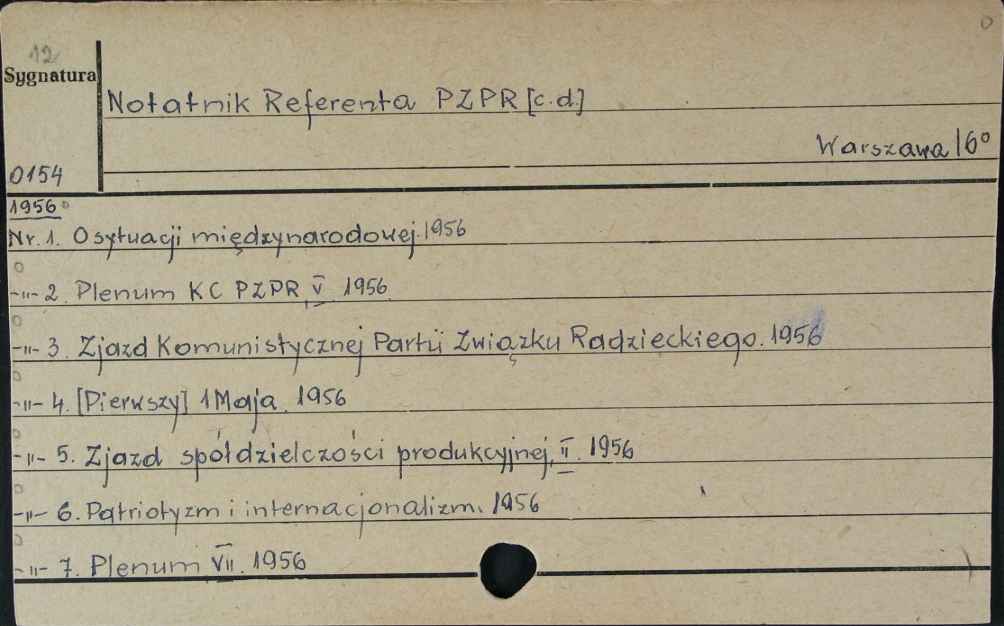 12
Sygnatura
Notatnik Referenta PZPR [c.d.]
Warszawa 16°
0154
1956
Nr. 1. O sytuacji międzynarodowej. 1956
-"- 2. Plenum KC PZPR, V 1956
-"- 3. Zjazd Komunistycznej Partii Związku Radzieckiego. 1956
-"- 4. [Pierwszy] 1 Maja. 1956
-"- 5. Zjazd spółdzielczości produkcyjnej, II. 1956
-"- 6. Patriotyzm i internacjonalizm. 1956
-"- 7. Plenum VII. 1956